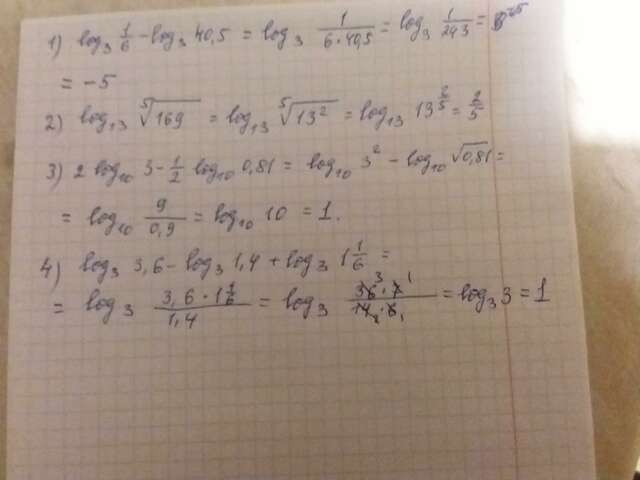 1) log₃ 1/6 - log₃ 40,5 = log₃ 1/(6·40,5) = log₃ 1/243 =
= -5
2) log₁₃ ⁵√169 = log₁₃ ⁵√(13²) = log₁₃ 13^(2/5) = 2/5
3) 2 log₁₀ 3 - 1/2 log₁₀ 0,81 = log₁₀ 3² - log₁₀ √0,81 =
= log₁₀ 9/0,9 = log₁₀ 10 = 1.
4) log₃ 3,6 - log₃ 1,4 + log₃ 1 1/6 =
= log₃ (3,6 · 1 1/6)/1,4 = log₃ (36 ³ · 7 ¹)/(14 ₂ · 6 ₁) = log₃ 3 = 1